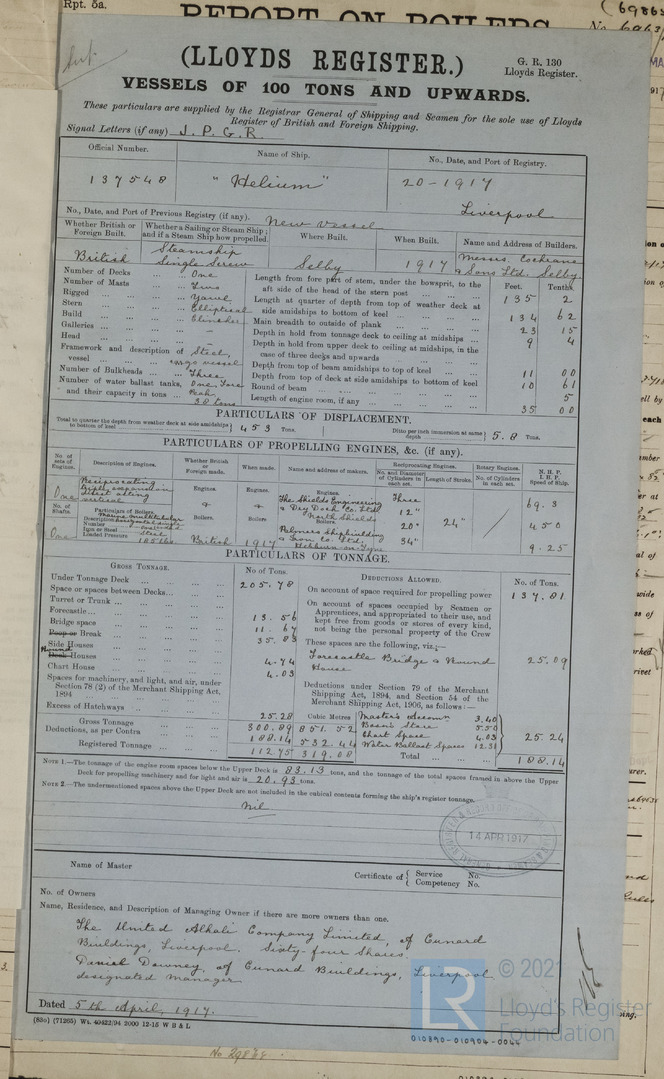 Rpt. 5a.
REPORT ON BOILERS
(LLOYDS REGISTER.)
G. R. 130
Lloyds Register.
VESSELS OF 100 TONS AND UPWARDS.
These particulars are supplied by the Registrar General of Shipping and Seamen for the sole use of Lloyds
Register of British and Foreign Shipping.
Signal Letters (if any) J. P. G. R.
Official Number. Name of Ship. No., Date, and Port of Registry.
137548 "Helium" 20-1917
Liverpool
No., Date, and Port of Previous Registry (if any). New Vessel
Whether British or Foreign Built. Whether a Sailing or Steam Ship; and if a Steam Ship how propelled. Where Built. When Built. Name and Address of Builders.
British Steamship Single Screw Selby 1917 Messrs. Cochrane & Sons Ltd. Selby.
Number of Decks ... One
Number of Masts ... Two
Rigged ... Yawl
Stern ... Elliptical
Build ... Clincher
Galleries ...
Head ...
Framework and description of vessel ... Steel, cargo vessel
Number of Bulkheads ... Three
Number of water ballast tanks, and their capacity in tons ... One, Fore Peak 38 tons
Feet. Tenths.
Length from fore part of stem, under the bowsprit, to the aft side of the head of the stern post 135 2
Length at quarter of depth from top of weather deck at side amidships to bottom of keel 134 62
Main breadth to outside of plank 23 15
Depth in hold from tonnage deck to ceiling at midships 9 4
Depth in hold from upper deck to ceiling at midships, in the case of three decks and upwards
Depth from top of beam amidships to top of keel 11 00
Depth from top of deck at side amidships to bottom of keel 10 61
Round of beam 5
Length of engine room, if any 35 00
PARTICULARS OF DISPLACEMENT.
Total to quarter the depth from weather deck at side amidships to bottom of keel 453 Tons. Ditto per inch immersion at same depth 5.8 Tons.
PARTICULARS OF PROPELLING ENGINES, &c. (if any).
No. of sets of Engines. Description of Engines. Whether British or Foreign made. When made. Name and address of makers. Reciprocating Engines. Rotary Engines. N. H. P. I. H. P. Speed of Ship.
No. and Diameter of Cylinders in each set. Length of Stroke. No. of Cylinders in each set.
One Reciprocating triple expansion direct acting vertical Engines. Engines. Engines. The Shields Engineering & Dry Dock Co. Ltd. North Shields Three 12" 20" 34" 24" 69.3
450
9.25
No. of Shafts. Particulars of Boilers. Boilers. Boilers. Boilers.
One Description Marine multitubular horizontal
Number
Iron or Steel Steel
Loaded Pressure 185 lbs British 1917 Palmers Shipbuilding & Iron Co. Ltd. Hebburn-on-Tyne
PARTICULARS OF TONNAGE.
GROSS TONNAGE. No. of Tons. DEDUCTIONS ALLOWED. No. of Tons.
Under Tonnage Deck ... 205.78
Space or spaces between Decks ...
Turret or Trunk ...
Forecastle ... 13.56
Bridge space ... 11.67
Poop or Break ... 35.83
Side Houses ...
Round Deck Houses ... 4.74
Chart House ... 4.03
Spaces for machinery, and light, and air, under Section 78 (2) of the Merchant Shipping Act, 1894 ...
Excess of Hatchways ... 25.28
On account of space required for propelling power 137.81
On account of spaces occupied by Seamen or Apprentices, and appropriated to their use, and kept free from goods or stores of every kind, not being the personal property of the Crew
These spaces are the following, viz.:—
Forecastle Bridge & Round House 25.09
Deductions under Section 79 of the Merchant Shipping Act, 1894, and Section 54 of the Merchant Shipping Act, 1906, as follows:—
Cubic Metres
Master's Accomn 3.40
Bosn's Store 5.50
Chart Space 4.03
Water Ballast Spaces 12.31
25.24
Gross Tonnage 300.89 851.52
Deductions, as per Contra 188.14 532.44
Registered Tonnage 112.75 319.08
Total 188.14
NOTE 1.—The tonnage of the engine room spaces below the Upper Deck is 83.13 tons, and the tonnage of the total spaces framed in above the Upper
Deck for propelling machinery and for light and air is 20.93 tons.
NOTE 2.—The undermentioned spaces above the Upper Deck are not included in the cubical contents forming the ship's register tonnage.
Nil
14 APR 1917
Name of Master
Certificate of { Service No. Competency No.
No. of Owners
Name, Residence, and Description of Managing Owner if there are more owners than one.
The United Alkali Company Limited, of Cunard
Buildings, Liverpool. Sixty-four Shares.
Daniel Downey, of Cunard Buildings, Liverpool
designated manager
Dated 5th April, 1917.
(85o) (71265) Wt. 40422/94 2000 12-15 W B & L
© 2021
LR
Lloyd's Register
Foundation
010890-010904-0044